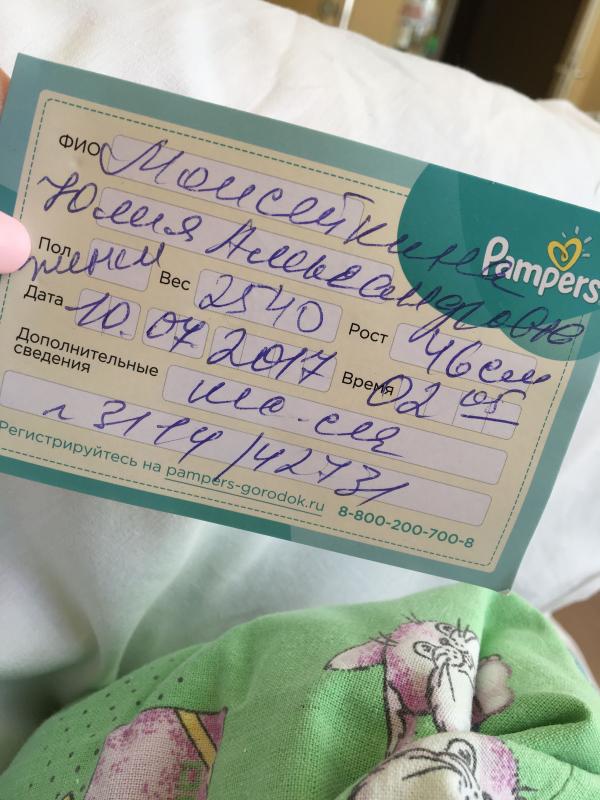 ФИО Моисейкина
Юлия Александровн
Pampers
Пол женск Вес 2540 Рост 46 см
Дата 10.07 2017 Время 02 05
Дополнительные
сведения
Регистрируйтесь на pampers-gorodok.ru 8-800-200-700-8